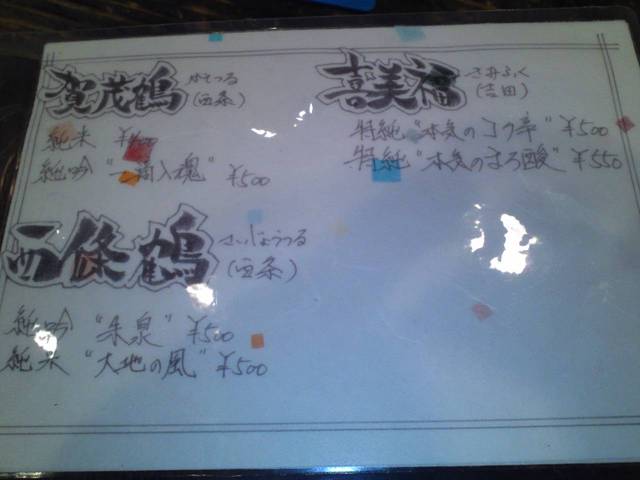 賀茂鶴 かもつる
(西条)
純米 ¥400
純吟 "一滴入魂" ¥500
西條鶴 さいじょうつる
(西条)
純吟 "朱泉" ¥500
純米 "大地の風" ¥500
喜美福 きみふく
(吉田)
特純 "本気のコク辛" ¥500
特純 "本気のまろ酸" ¥550